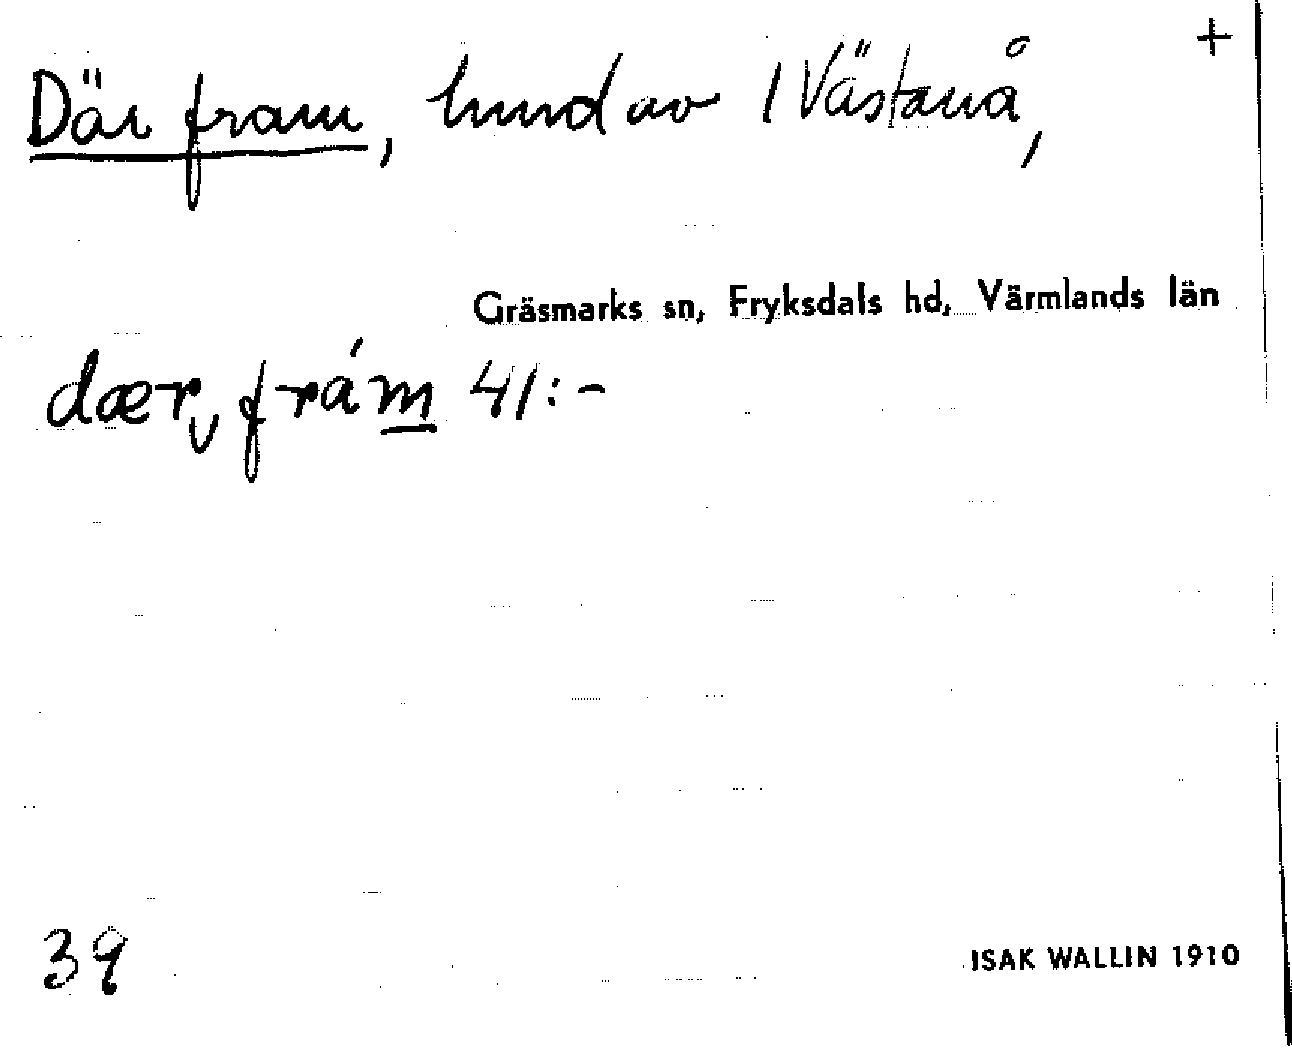 +
Där fram, hmd av 1 Västanå,
Gräsmarks sn, Fryksdals hd, Värmlands län
dær frám 41:-
39
ISAK WALLIN 1910